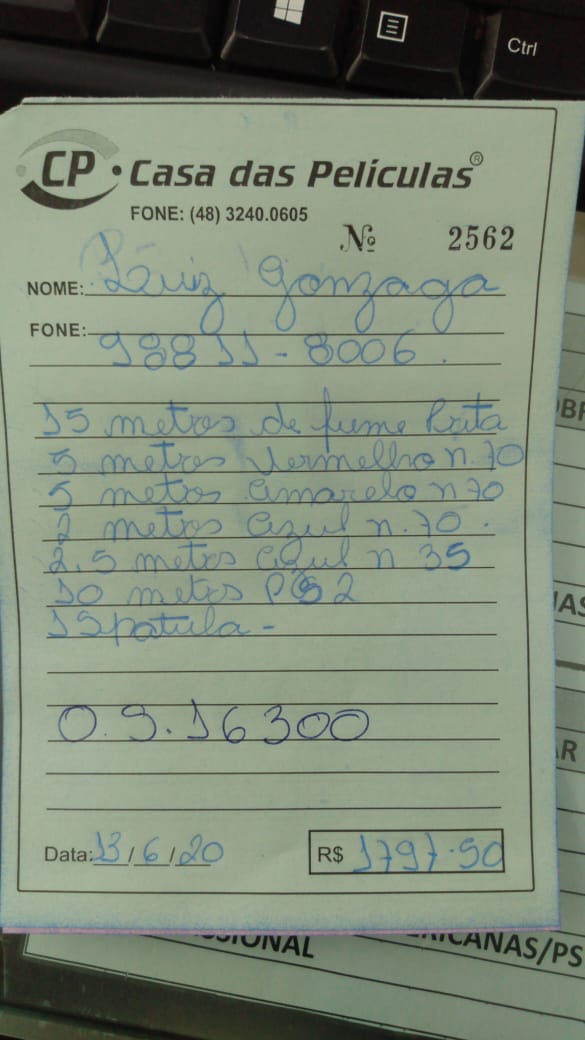 Ctrl
CP. Casa das Películas®
FONE: (48) 3240.0605
Nº 2562
NOME: Luiz Gonzaga
FONE: 98811-8006.
15 metros de fume Prata
5 metros vermelho n.70
5 metros amarelo n 70
2 metros azul n.70.
2,5 metros azul n 35
10 metros PS2
1 Spatula-
O.S.16300
Data: 13/6/20
R$ 1797.90
SSIONAL
RICANAS/PS